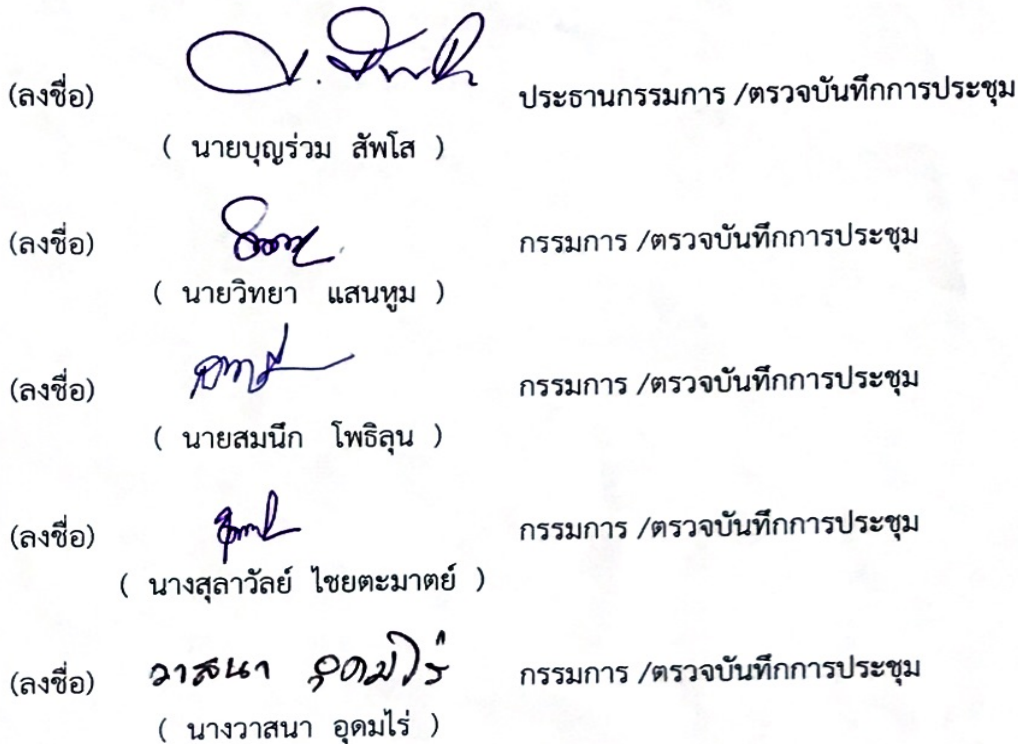 (ลงชื่อ) ประธานกรรมการ /ตรวจบันทึกการประชุม
( นายบุญร่วม สัพโส )
(ลงชื่อ) กรรมการ /ตรวจบันทึกการประชุม
( นายวิทยา แสนหูม )
(ลงชื่อ) กรรมการ /ตรวจบันทึกการประชุม
( นายสมนึก โพธิลุน )
(ลงชื่อ) กรรมการ /ตรวจบันทึกการประชุม
( นางสุลาวัลย์ ไชยตะมาตย์ )
(ลงชื่อ) วาสนา อุดมไร่ กรรมการ /ตรวจบันทึกการประชุม
( นางวาสนา อุดมไร่ )